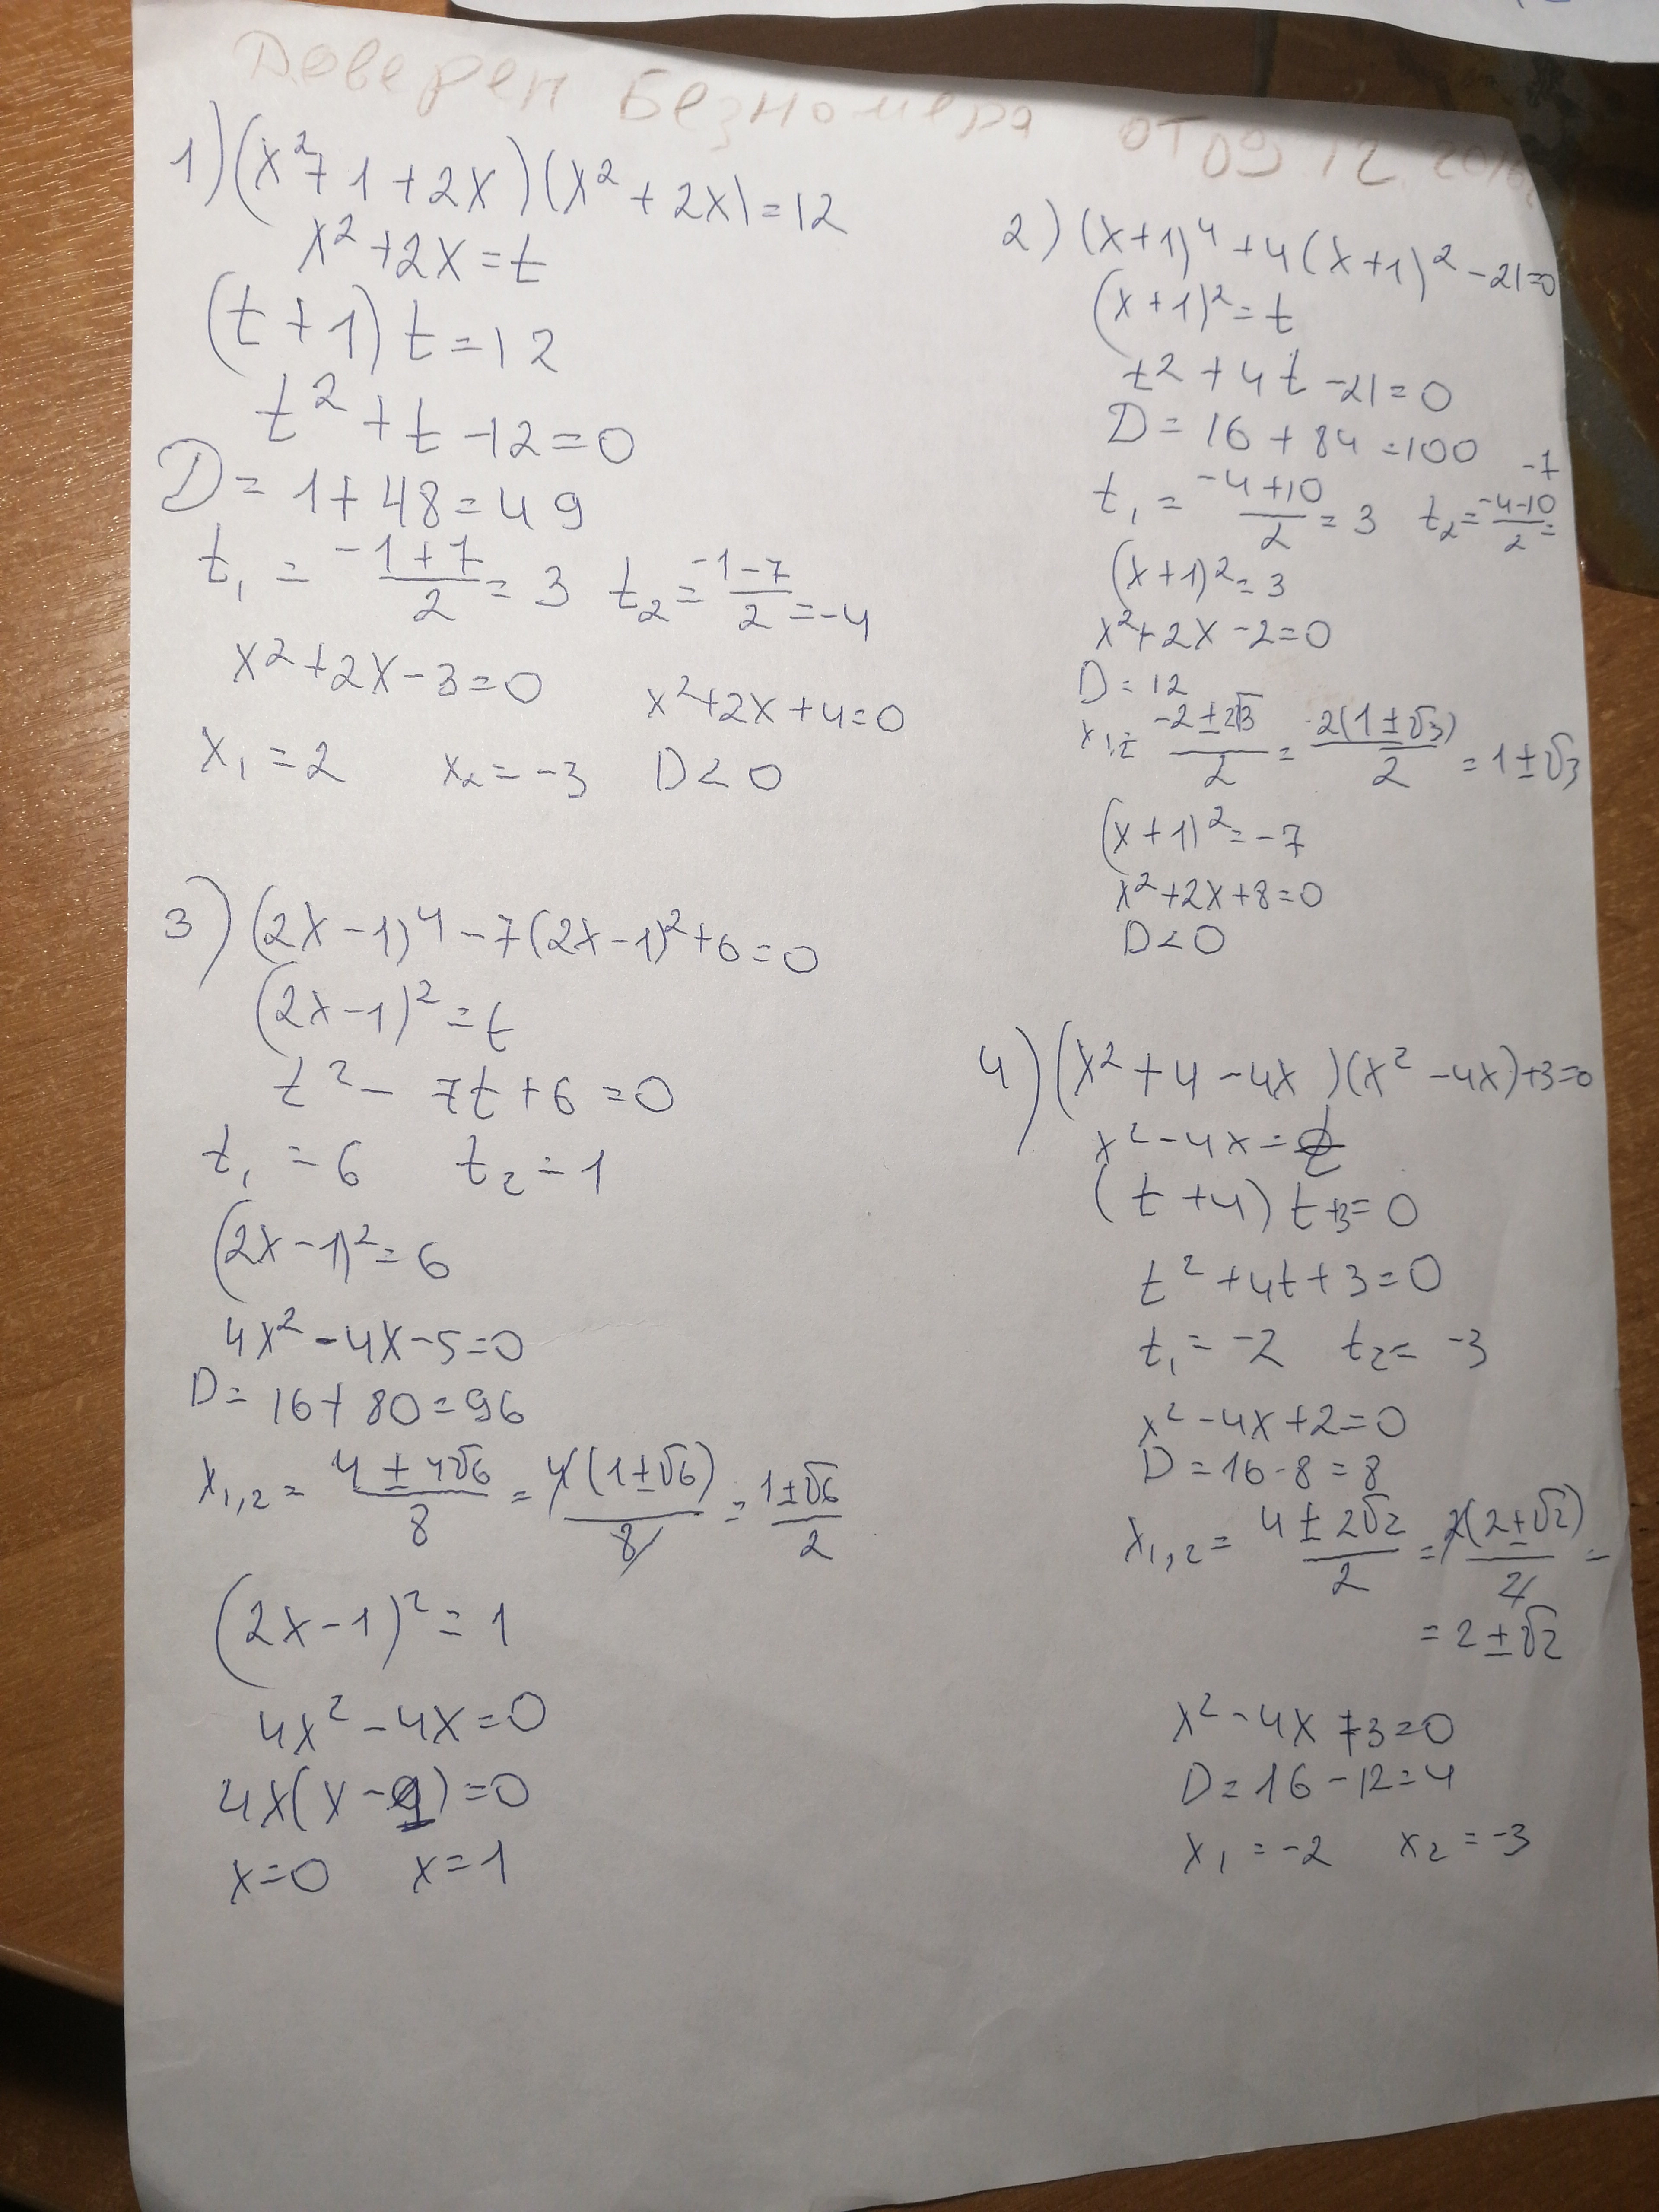 Доверен Без номера от 09 12 2016
1) (x²+1+2x)(x²+2x)=12
x²+2x=t
(t+1)t=12
t²+t-12=0
D=1+48=49
t₁=(-1+7)/2=3 t₂=(-1-7)/2=-4
x²+2x-3=0 x²+2x+4=0
x₁=2 x₂=-3 D<0
2) (x+1)⁴+4(x+1)²-21=0
(x+1)²=t
t²+4t-21=0
D=16+84=100
t₁=(-4+10)/2=3 t₂=(-4-10)/2=-7
(x+1)²=3
x²+2x-2=0
D=12
x₁,₂=(-2±2√3)/2=2(1±√3)/2=1±√3
(x+1)²=-7
x²+2x+8=0
D<0
3) (2x-1)⁴-7(2x-1)²+6=0
(2x-1)²=t
t²-7t+6=0
t₁=6 t₂=1
(2x-1)²=6
4x²-4x-5=0
D=16+80=96
x₁,₂=(4±4√6)/8=4(1±√6)/8=(1±√6)/2
(2x-1)²=1
4x²-4x=0
4x(x-1)=0
x=0 x=1
4) (x²+4-4x)(x²-4x)+3=0
x²-4x=t
(t+4)t+3=0
t²+4t+3=0
t₁=-2 t₂=-3
x²-4x+2=0
D=16-8=8
x₁,₂=(4±2√2)/2=2(2±√2)/2=
=2±√2
x²-4x+3=0
D=16-12=4
x₁=-2 x₂=-3